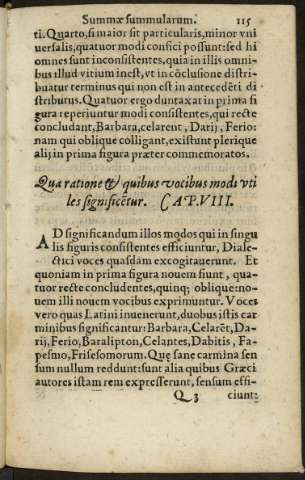 Summæ summularum. 115
ti. Quarto, si maior sit particularis, minor vni
uersalis, quatuor modi confici possunt: sed hi
omnes sunt inconsistentes, quia in illis omni-
bus illud vitium inest, vt in cōclusione distri-
buatur terminus qui non est in antecedēti di
stributus. Quatuor ergo duntaxat in prima fi
gura reperiuntur modi consistentes, qui recte
concludant, Barbara, celarent, Darij, Ferio:
nam qui oblique colligant, existunt plerique
alij in prima figura præter commemoratos.
Qua ratione & quibus vocibus modi vti
les significētur. CAP. VIII.
AD significandum illos modos qui in singu
lis figuris consistentes efficiuntur, Diale-
ctici voces quasdam excogitauerunt. Et
quoniam in prima figura nouem fiunt, qua-
tuor recte concludentes, quinq; oblique: no-
uem illi nouem vocibus exprimuntur. Voces
vero quas Latini inuenerunt, duobus istis car
minibus significantur: Barbara, Celarēt, Da-
rij, Ferio, Baralipton, Celantes, Dabitis, Fa-
pesmo, Frisesomorum. Que sane carmina sen
sum nullum reddunt: sunt alia quibus Græci
autores istam rem expresserunt, sensum effi-
Q 3 ciunt: